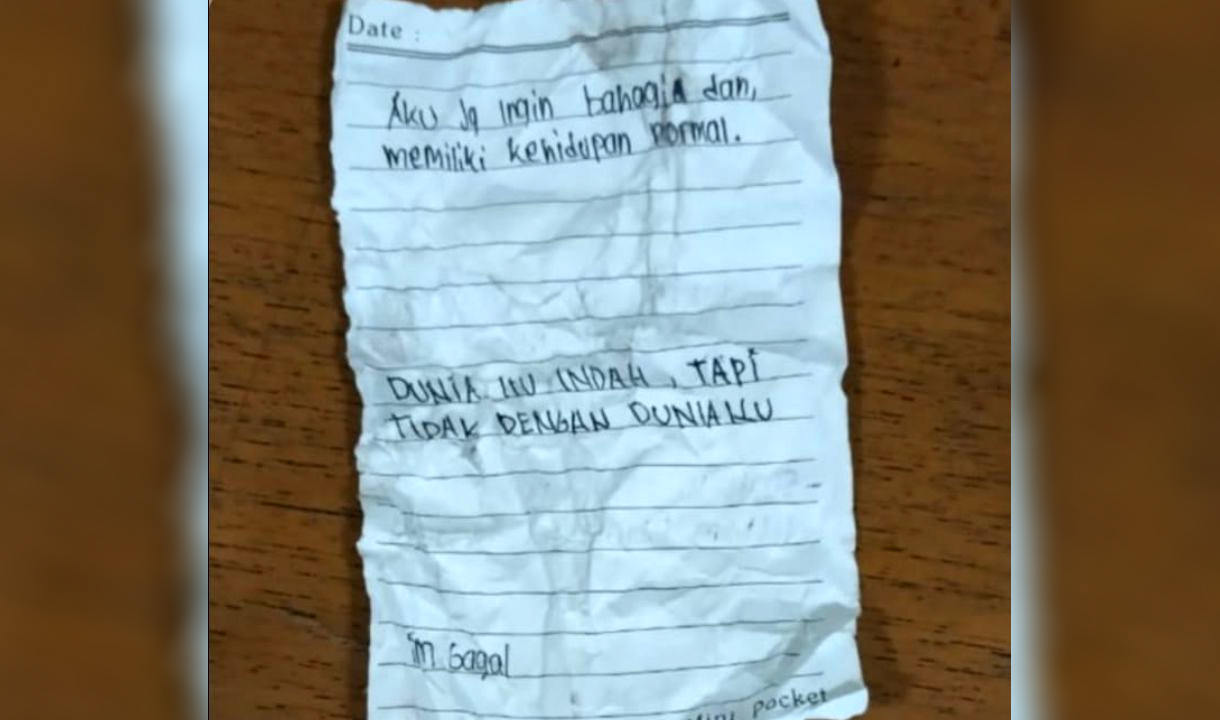 Date :
Aku Jg Ingin bahagia dan,
memiliki kehidupan normal.
DUNIA ITU INDAH, TAPI
TIDAK DENGAN DUNIAKU
I'm Gagal
Mini pocket